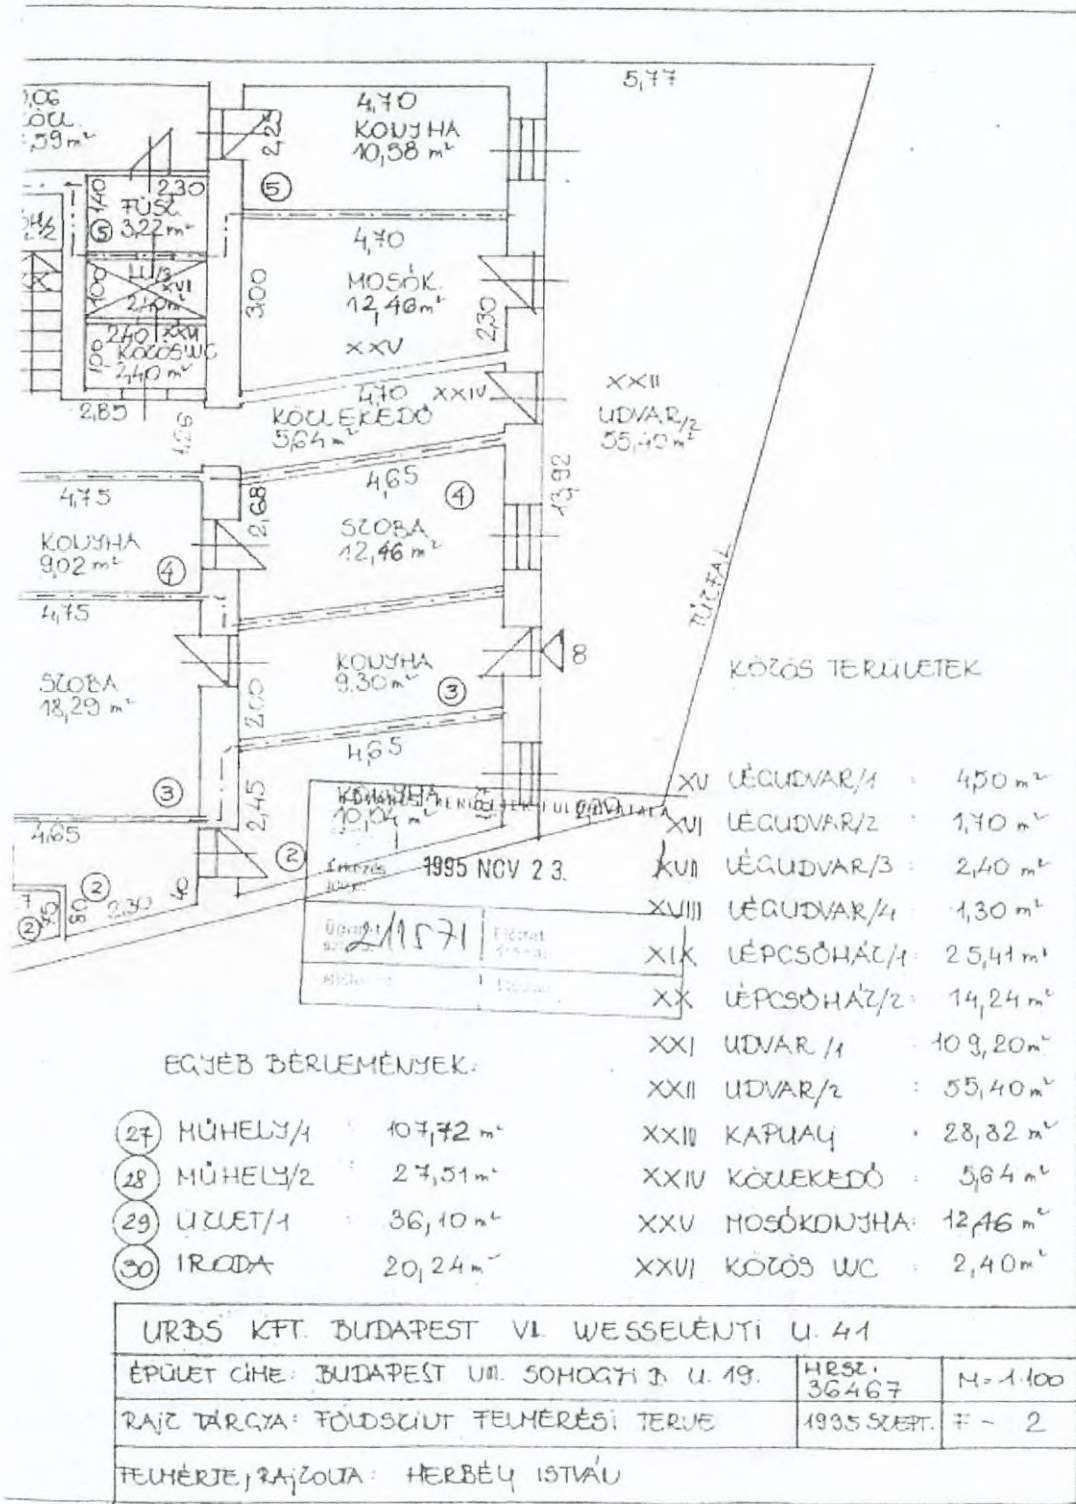 5,77
4,70
KONYHA
10,58 m²
2,25
5
,59 m²
2,30
140
FÜSZ.
3,22 m²
5
4,70
MOSÓK.
12,46 m²
XXV
3,00
2,30
100
XVII
2,40 m²
2,40 XXVI
KÖZÖS WC
2,40 m²
100
2,85
1,26
4,70 XXIV
KÖZLEKEDŐ
5,64 m²
XXII
UDVAR/2
55,40 m²
13,92
4,75
KONYHA
9,02 m²
4
2,68
4,65
4
SZOBA
12,46 m²
TŰZFAL
4,75
SZOBA
18,29 m²
3
KONYHA
9.30 m²
3
2,00
8
4,65
KONYHA
10,04 m²
2,45
2
4,65
2
2,30
80
2
1995 NOV 23.
Érkezés
211571
KÖZÖS TERÜLETEK
XV LÉGUDVAR/1 : 4,50 m²
XVI LÉGUDVAR/2 : 1,70 m²
XVII LÉGUDVAR/3 : 2,40 m²
XVIII LÉGUDVAR/4 : 1,30 m²
XIX LÉPCSŐHÁZ/1 : 25,41 m²
XX LÉPCSŐHÁZ/2 : 14,24 m²
XXI UDVAR /1 109,20 m²
XXII UDVAR/2 : 55,40 m²
XXIII KAPUALJ : 28,82 m²
XXIV KÖZLEKEDŐ : 5,64 m²
XXV MOSÓKONYHA: 12,46 m²
XXVI KÖZÖS WC : 2,40 m²
EGYÉB BÉRLEMÉNYEK:
27 MŰHELY/1 : 107,72 m²
28 MŰHELY/2 : 27,51 m²
29 ÜZLET/1 : 36,10 m²
30 IRODA 20,24 m²
URBS KFT. BUDAPEST VI. WESSELÉNYI U. 41
ÉPÜLET CÍME: BUDAPEST VIII. SOMOGYI B. U. 19.
HRSZ.
36467
M=1:100
RAJZ TÁRGYA: FÖLDSZINT FELMÉRÉSI TERVE
1995 SZEPT.
F - 2
FELMÉRTE, RAJZOLTA: HERBÉLY ISTVÁN